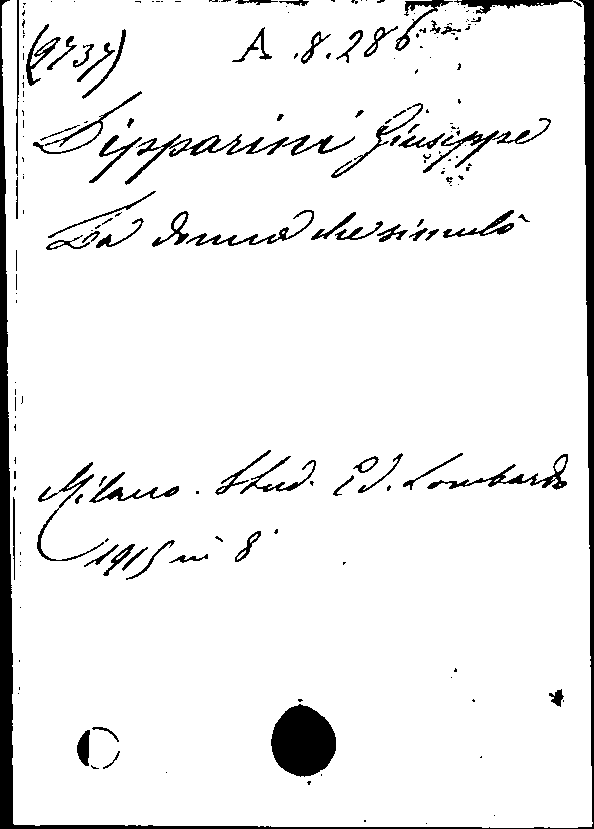 (9737) A.8.286
Lipparini Giuseppe
La donna che simulò
Milano. Stud. Ed. Lombardo
1915 in 8°